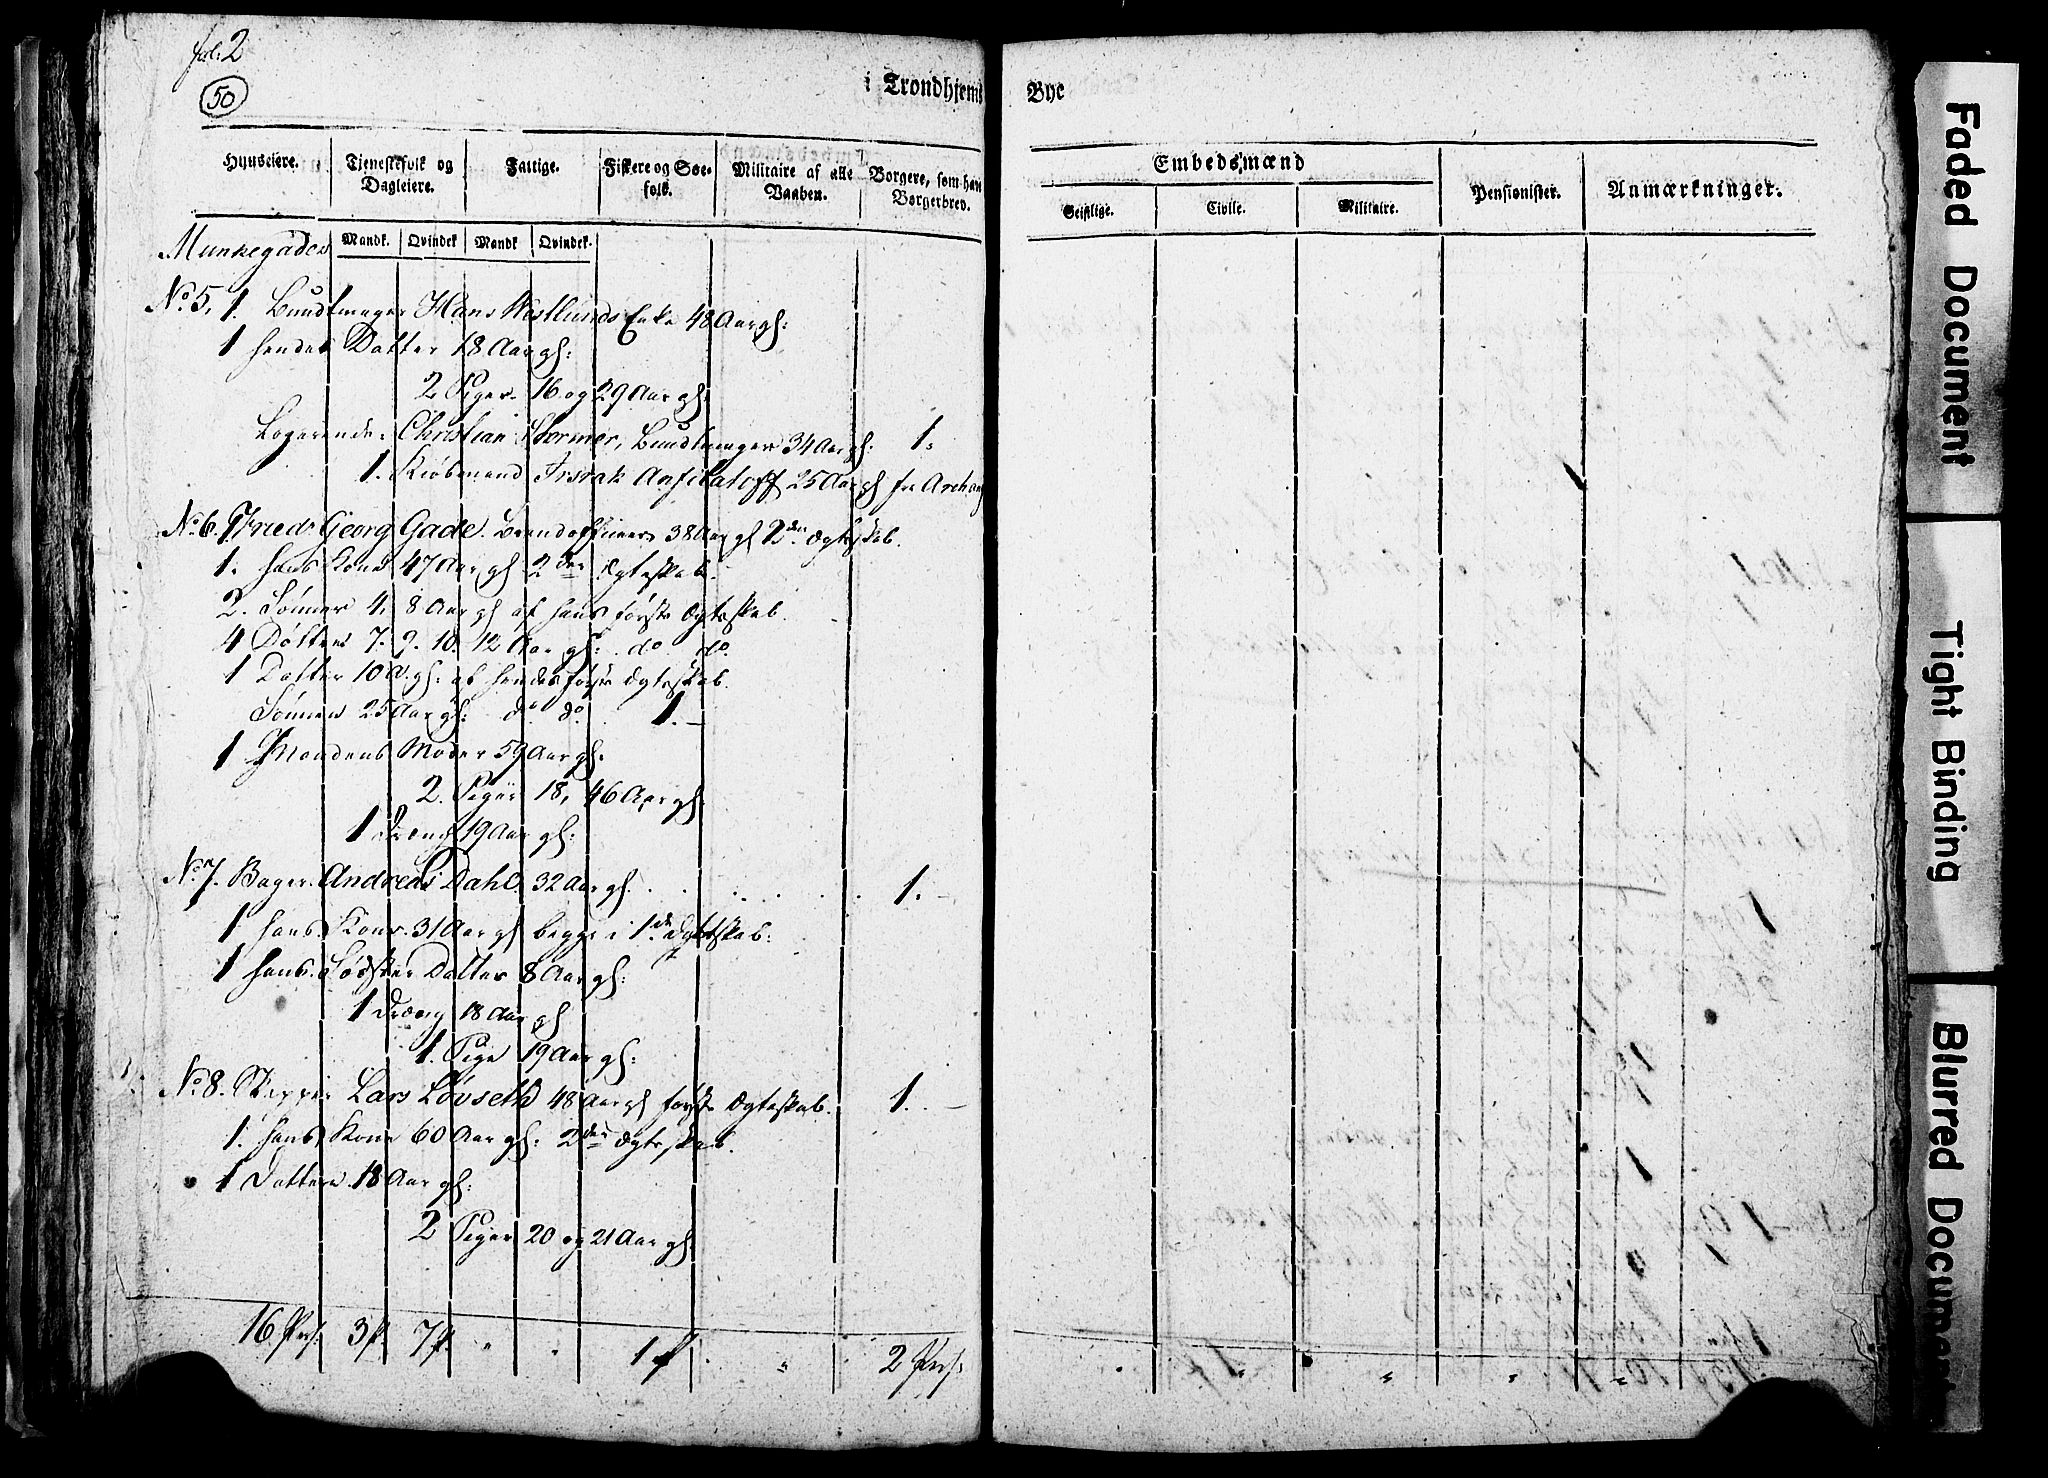 fol: 2
50
i Trondhjems Bye
Huuseiere. Tienestefolk og Dagleiere. Fattige. Fiskere og Søe-folk. Militaire af alle Vaaben. Borgere, som have Borgerbrev. Embedsmænd Pensionister. Anmærkninger.
Geistlige. Civile. Militaire.
Mandk. Qvindek Mandk Qvindek.
Munkegaden
No 5, 1. Bundtmager Hans Westlunds Enke 48 Aar gl:
1 hendes Datter 18 Aar gl:
2 Piger. 16 og 29 Aar gl:
Logerende: Christian Stormer, Bundtmager 34 Aar gl: 1.
1. Kiøbmand Issak Anfilatoff 25 Aar gl fra Archang
No 6. 1 Friedr Georg Gade. Brandofficeer 38 Aar gl 2den Ægteskab.
1. hans Kone 47 Aar gl 2den Ægteskab.
2. Sønner 4, 8 Aar gl af hans første Ægteskab.
4 Døttre 7. 9. 10. 12 Aar gl: do do.
1 Datter 10 A. gl: af hendes første Ægteskab.
Sønnen 25 Aar gl: do do. 1. –
1 Mandens Moder 59 Aar gl:
2. Piger 18, 46 Aar gl:
1 Dreng 19 Aar gl:
No 7. Bager. Andreas Dahl. 32 Aar gl. . . . . . 1. –
1 hans Kone. 31 Aar gl begge i 1ste Ægteskab:
1 hans Søster Datter 8 Aar gl:
1 Dreng 18 Aar gl
1. Pige 19 Aar gl:
No 8. Skipper Lars Løvseth 48 Aar gl første Ægteskab. 1. –
1. hans Kone 60 Aar gl: 2den Ægteskab.
1 Datter 18 Aar gl:
2 Piger 20 og 21 Aar gl.
16 Pers. 3 p. 7 p. " " 1 p. " 2 Pers: " " " " "
Faded Document
Tight Binding
Blurred Document